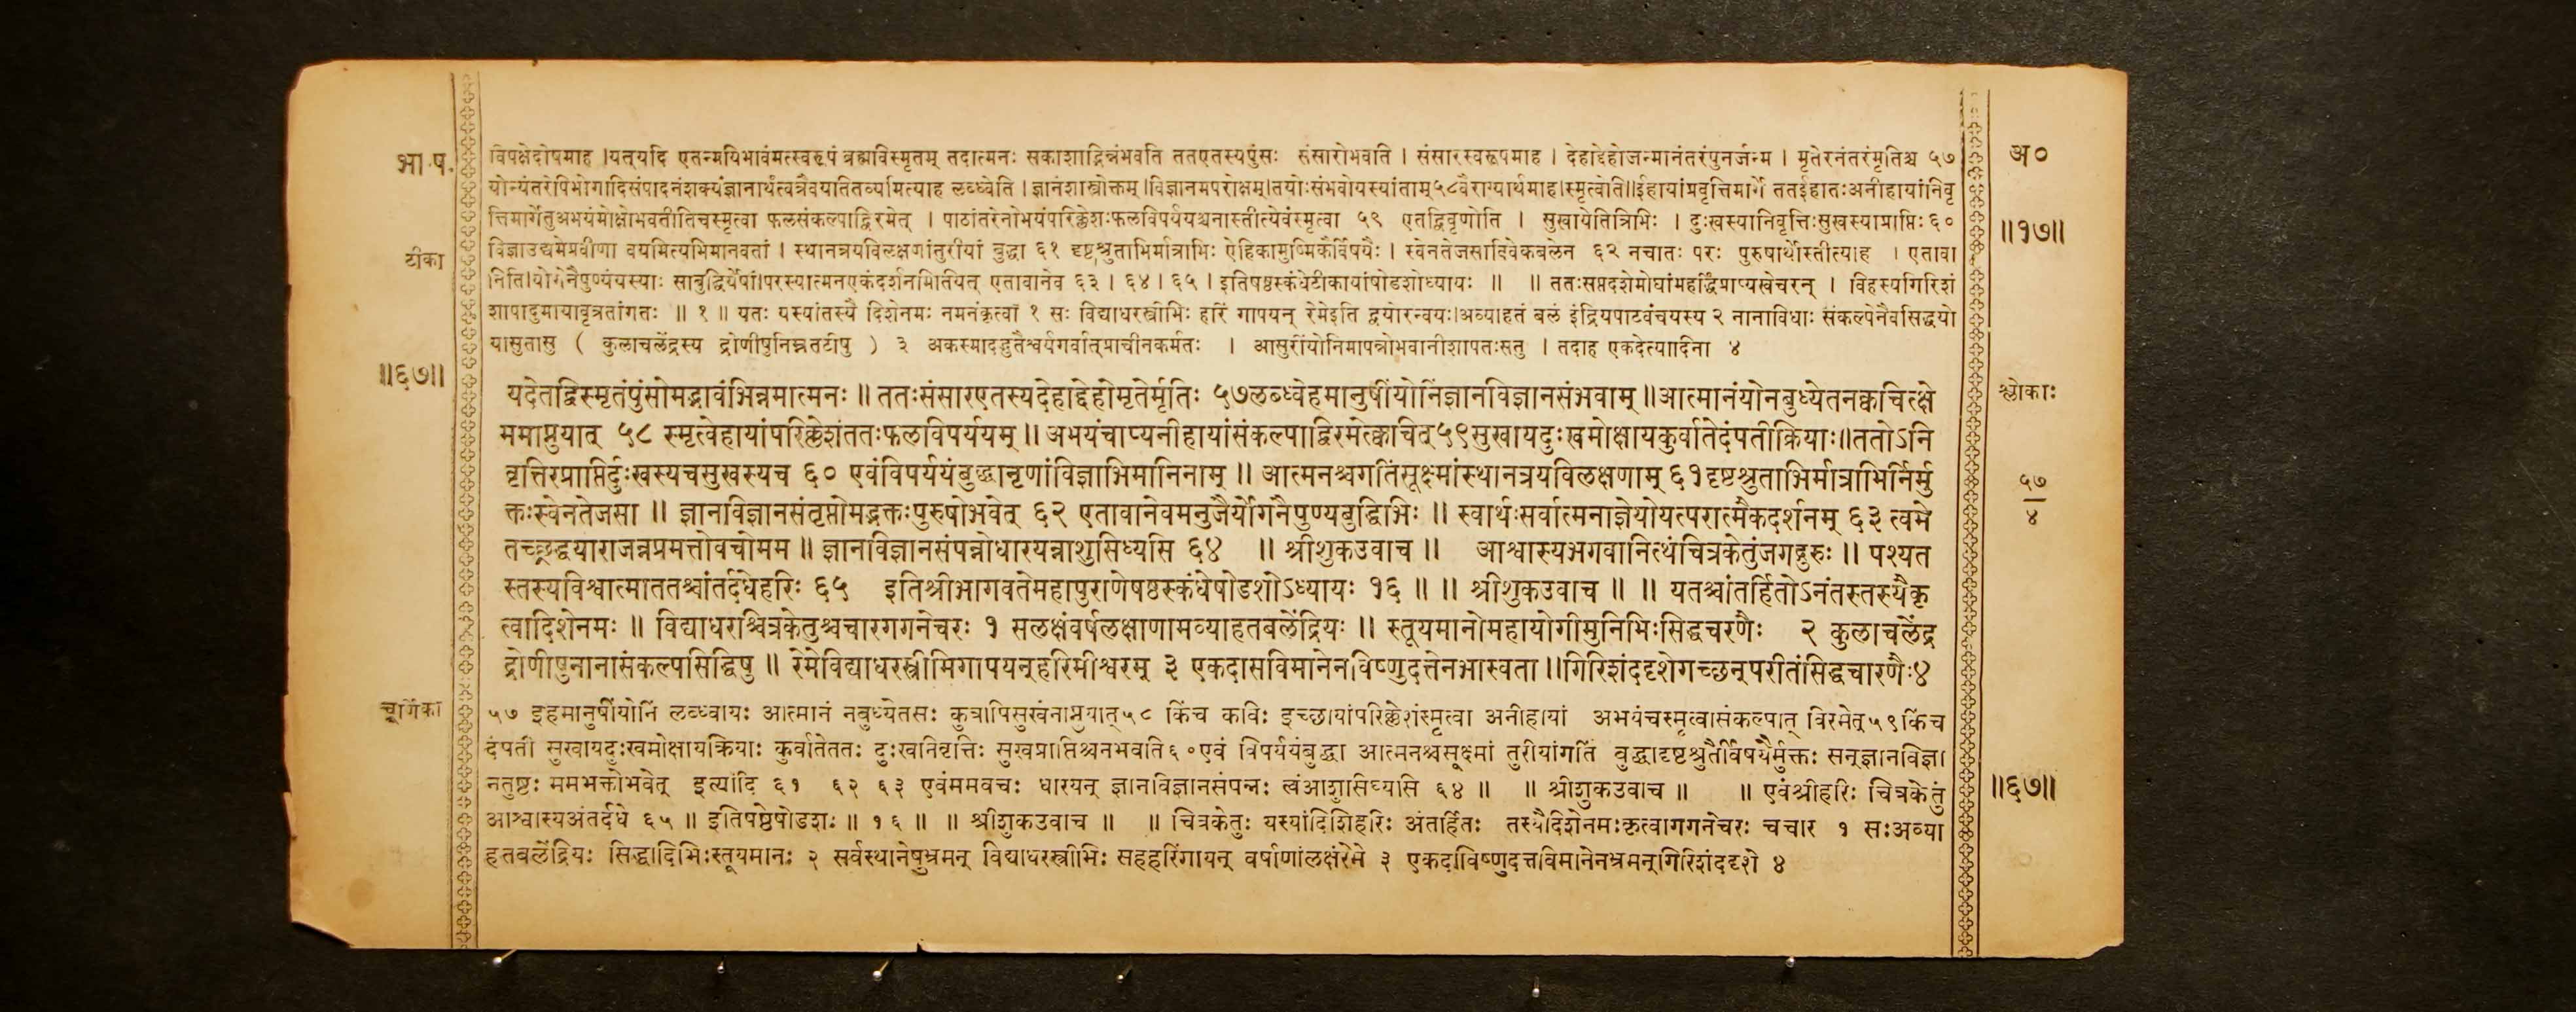 भा.ष.
टीका
॥६७॥
चूर्णिका
विपक्षेदोषमाह ।यत्यदि एतन्मयिभावंमत्स्वरूपं ब्रह्मविस्मृतम् तदात्मनः सकाशाद्भिन्नंभवति ततएतस्यपुंसः संसारोभवति । संसारस्वरूपमाह । देहाद्देहोजन्मानंतरंपुनर्जन्म । मृतेरनंतरंमृतिश्च ५७
योन्यंतरेपिभोगादिसंपादनंशक्यंज्ञानार्थंत्वत्रैवयतितव्यमित्याह लब्ध्वेति । ज्ञानंशास्त्रोक्तम् ।विज्ञानमपरोक्षम्।तयोःसंभवोयस्यांताम्५८वैराग्यार्थमाह।स्मृत्वेति॥ईहायांप्रवृत्तिमार्गे ततईहातःअनीहायांनिवृ
त्तिमार्गेतुअभयंमोक्षोभवतीतिचस्मृत्वा फलसंकल्पाद्विरमेत् । पाठांतरेनोभयंपरिक्लेशःफलविपर्ययश्चनास्तीत्येवंस्मृत्वा ५९ एतद्विवृणोति । सुखायेतित्रिभिः । दुःखस्यानिवृत्तिःसुखस्याप्राप्तिः६०
विज्ञाउद्यमेप्रवीणा वयमित्यभिमानवतां । स्थानत्रयविलक्षणांतुरीयां बुद्धा ६१ दृष्टश्रुताभिर्मात्राभिः ऐहिकामुष्मिकैर्विषयैः । स्वेनतेजसाविवेकबलेन ६२ नचातः परः पुरुषार्थोस्तीत्याह । एतावा
निति।योगेनैपुण्यंयस्याः साबुद्धिर्येषां।परस्यात्मनएकंदर्शनमितियत् एतावानेव ६३ । ६४ । ६५ । इतिषष्ठस्कंधेटीकायांषोडशोध्यायः ॥ ॥ ततःसप्तदशेमोघांमहर्द्धिंप्राप्यखेचरन् । विहस्यगिरिशं
शापादुमायावृत्रतांगतः ॥ १ ॥ यतः यस्यांतस्यै दिशेनमः नमनंकृत्वा १ सः विद्याधरस्त्रीभिः हरिं गापयन् रेमेइति द्वयोरन्वयः।अव्याहतं बलं इंद्रियपाटवंचयस्य २ नानाविधाः संकल्पेनैवसिद्धयो
यासुतासु ( कुलाचलेंद्रस्य द्रोणीषुनिम्नतटीषु ) ३ अकस्मादद्भुतैश्वर्यगर्वात्प्राचीनकर्मतः । आसुरींयोनिमापन्नोभवानीशापतःसतु । तदाह एकदेत्यादिना ४
यदेतद्विस्मृतंपुंसोमद्भावंभिन्नमात्मनः ॥ ततःसंसारएतस्यदेहाद्देहोमृतेर्मृतिः ५७लब्ध्वेहमानुषींयोनिंज्ञानविज्ञानसंभवाम् ॥आत्मानंयोनबुध्येतनक्वचित्क्षे
ममाप्नुयात् ५८ स्मृत्वेहायांपरिक्लेशंततःफलविपर्ययम् ॥ अभयंचाप्यनीहायांसंकल्पाद्विरमेत्कवित्५९सुखायदुःखमोक्षायकुर्वातेदंपतीक्रियाः॥ततोऽनि
वृत्तिरप्राप्तिर्दुःखस्यचसुखस्यच ६० एवंविपर्ययंबुद्धानृणांविज्ञाभिमानिनाम् ॥ आत्मनश्चगतिंसूक्ष्मांस्थानत्रयविलक्षणाम् ६१दृष्टश्रुताभिर्मात्राभिर्निर्मु
क्तःस्वेनतेजसा ॥ ज्ञानविज्ञानसंतृप्तोमद्भक्तःपुरुषोभवेत् ६२ एतावानेवमनुजैर्योगनैपुण्यबुद्धिभिः ॥ स्वार्थःसर्वात्मनाज्ञेयोयत्परात्मैकदर्शनम् ६३ त्वमे
तच्छ्रद्धयाराजन्नप्रमत्तोवचोमम ॥ ज्ञानविज्ञानसंपन्नोधारयन्नाशुसिध्यसि ६४ ॥ श्रीशुकउवाच ॥ आश्वास्यभगवानित्थंचित्रकेतुंजगद्गुरुः ॥ पश्यत
स्तस्यविश्वात्माततश्चांतर्दधेहरिः ६५ इतिश्रीभागवतेमहापुराणेषष्ठस्कंधेषोडशोऽध्यायः १६ ॥ ॥ श्रीशुकउवाच ॥ ॥ यतश्चांतर्हितोऽनंतस्तस्यैकृ
त्वादिशेनमः ॥ विद्याधरश्चित्रकेतुश्चचारगगनेचरः १ सलक्षंवर्षलक्षाणामव्याहतबलेंद्रियः ॥ स्तूयमानोमहायोगीमुनिभिःसिद्धचरणैः २ कुलाचलेंद्र
द्रोणीषुनानासंकल्पसिद्धिषु ॥ रेमेविद्याधरस्त्रीभिर्गापयन्हरिमीश्वरम् ३ एकदासविमानेनविष्णुदत्तेनभास्वता ॥गिरिशंददृशेगच्छन्परीतंसिद्धचारणैः४
५७ इहमानुषींयोनिं लब्ध्वायः आत्मानं नबुध्येतसः कुत्रापिसुखंनाप्नुयात्५८ किंच कविः इच्छायांपरिक्लेशंस्मृत्वा अनीहायां अभयंचस्मृत्वासंकल्पात् विरमेत्५९किंच
दंपती सुखायदुःखमोक्षायक्रियाः कुर्वातेततः दुःखनिवृत्तिः सुखप्राप्तिश्चनभवति६०एवं विपर्ययंबुद्धा आत्मनश्चसूक्ष्मां तुरीयांगतिं बुद्धादृष्टश्रुतैर्विषयैर्मुक्तः सन्ज्ञानविज्ञा
नतुष्टः ममभक्तोभवेत् इत्यादि ६१ ६२ ६३ एवंममवचः धारयन् ज्ञानविज्ञानसंपन्नः त्वंआशुसिध्यसि ६४ ॥ ॥ श्रीशुकउवाच ॥ ॥ एवंश्रीहरिः चित्रकेतुं
आश्वास्यअंतर्दधे ६५ ॥ इतिषष्ठेषोडशः ॥ १६ ॥ ॥ श्रीशुकउवाच ॥ ॥ चित्रकेतुः यस्यांदिशिहरिः अंतर्हितः तस्यैदिशेनमःकृत्वागगनेचरः चचार १ सःअव्या
हतबलेंद्रियः सिद्धादिभिःस्तूयमानः २ सर्वस्थानेषुभ्रमन् विद्याधरस्त्रीभिः सहहरिंगायन् वर्षाणांलक्षंरेमे ३ एकदाविष्णुदत्तविमानेनभ्रमन्गिरिशंददृशे ४
अ०
॥१७॥
श्लोकाः
५७
४
॥६७॥